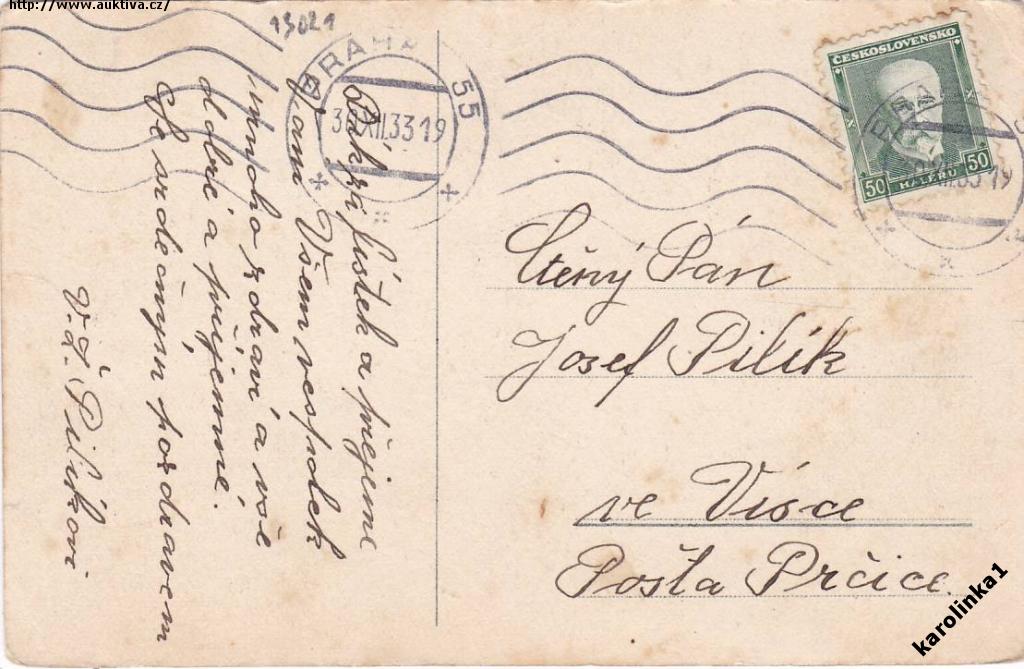 http://www.auktiva.cz/
13021
PRAHA 55
XII.33 19
ČESKOSLOVENSKO
50 HALÉŘŮ 50
Dík za lístek a přejeme
Vámi Všem vespolek
mnoho zdraví a vše
dobré a příjemné.
Se srdečným pozdravem
V.L. Pilíkovi
Ctěný Pán
Josef Pilík
ve Vísce
Pošta Prčice.
karolinka1